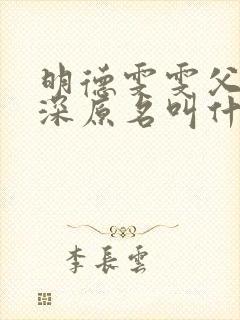 明德雯雯父
深原名叫什
李長雲